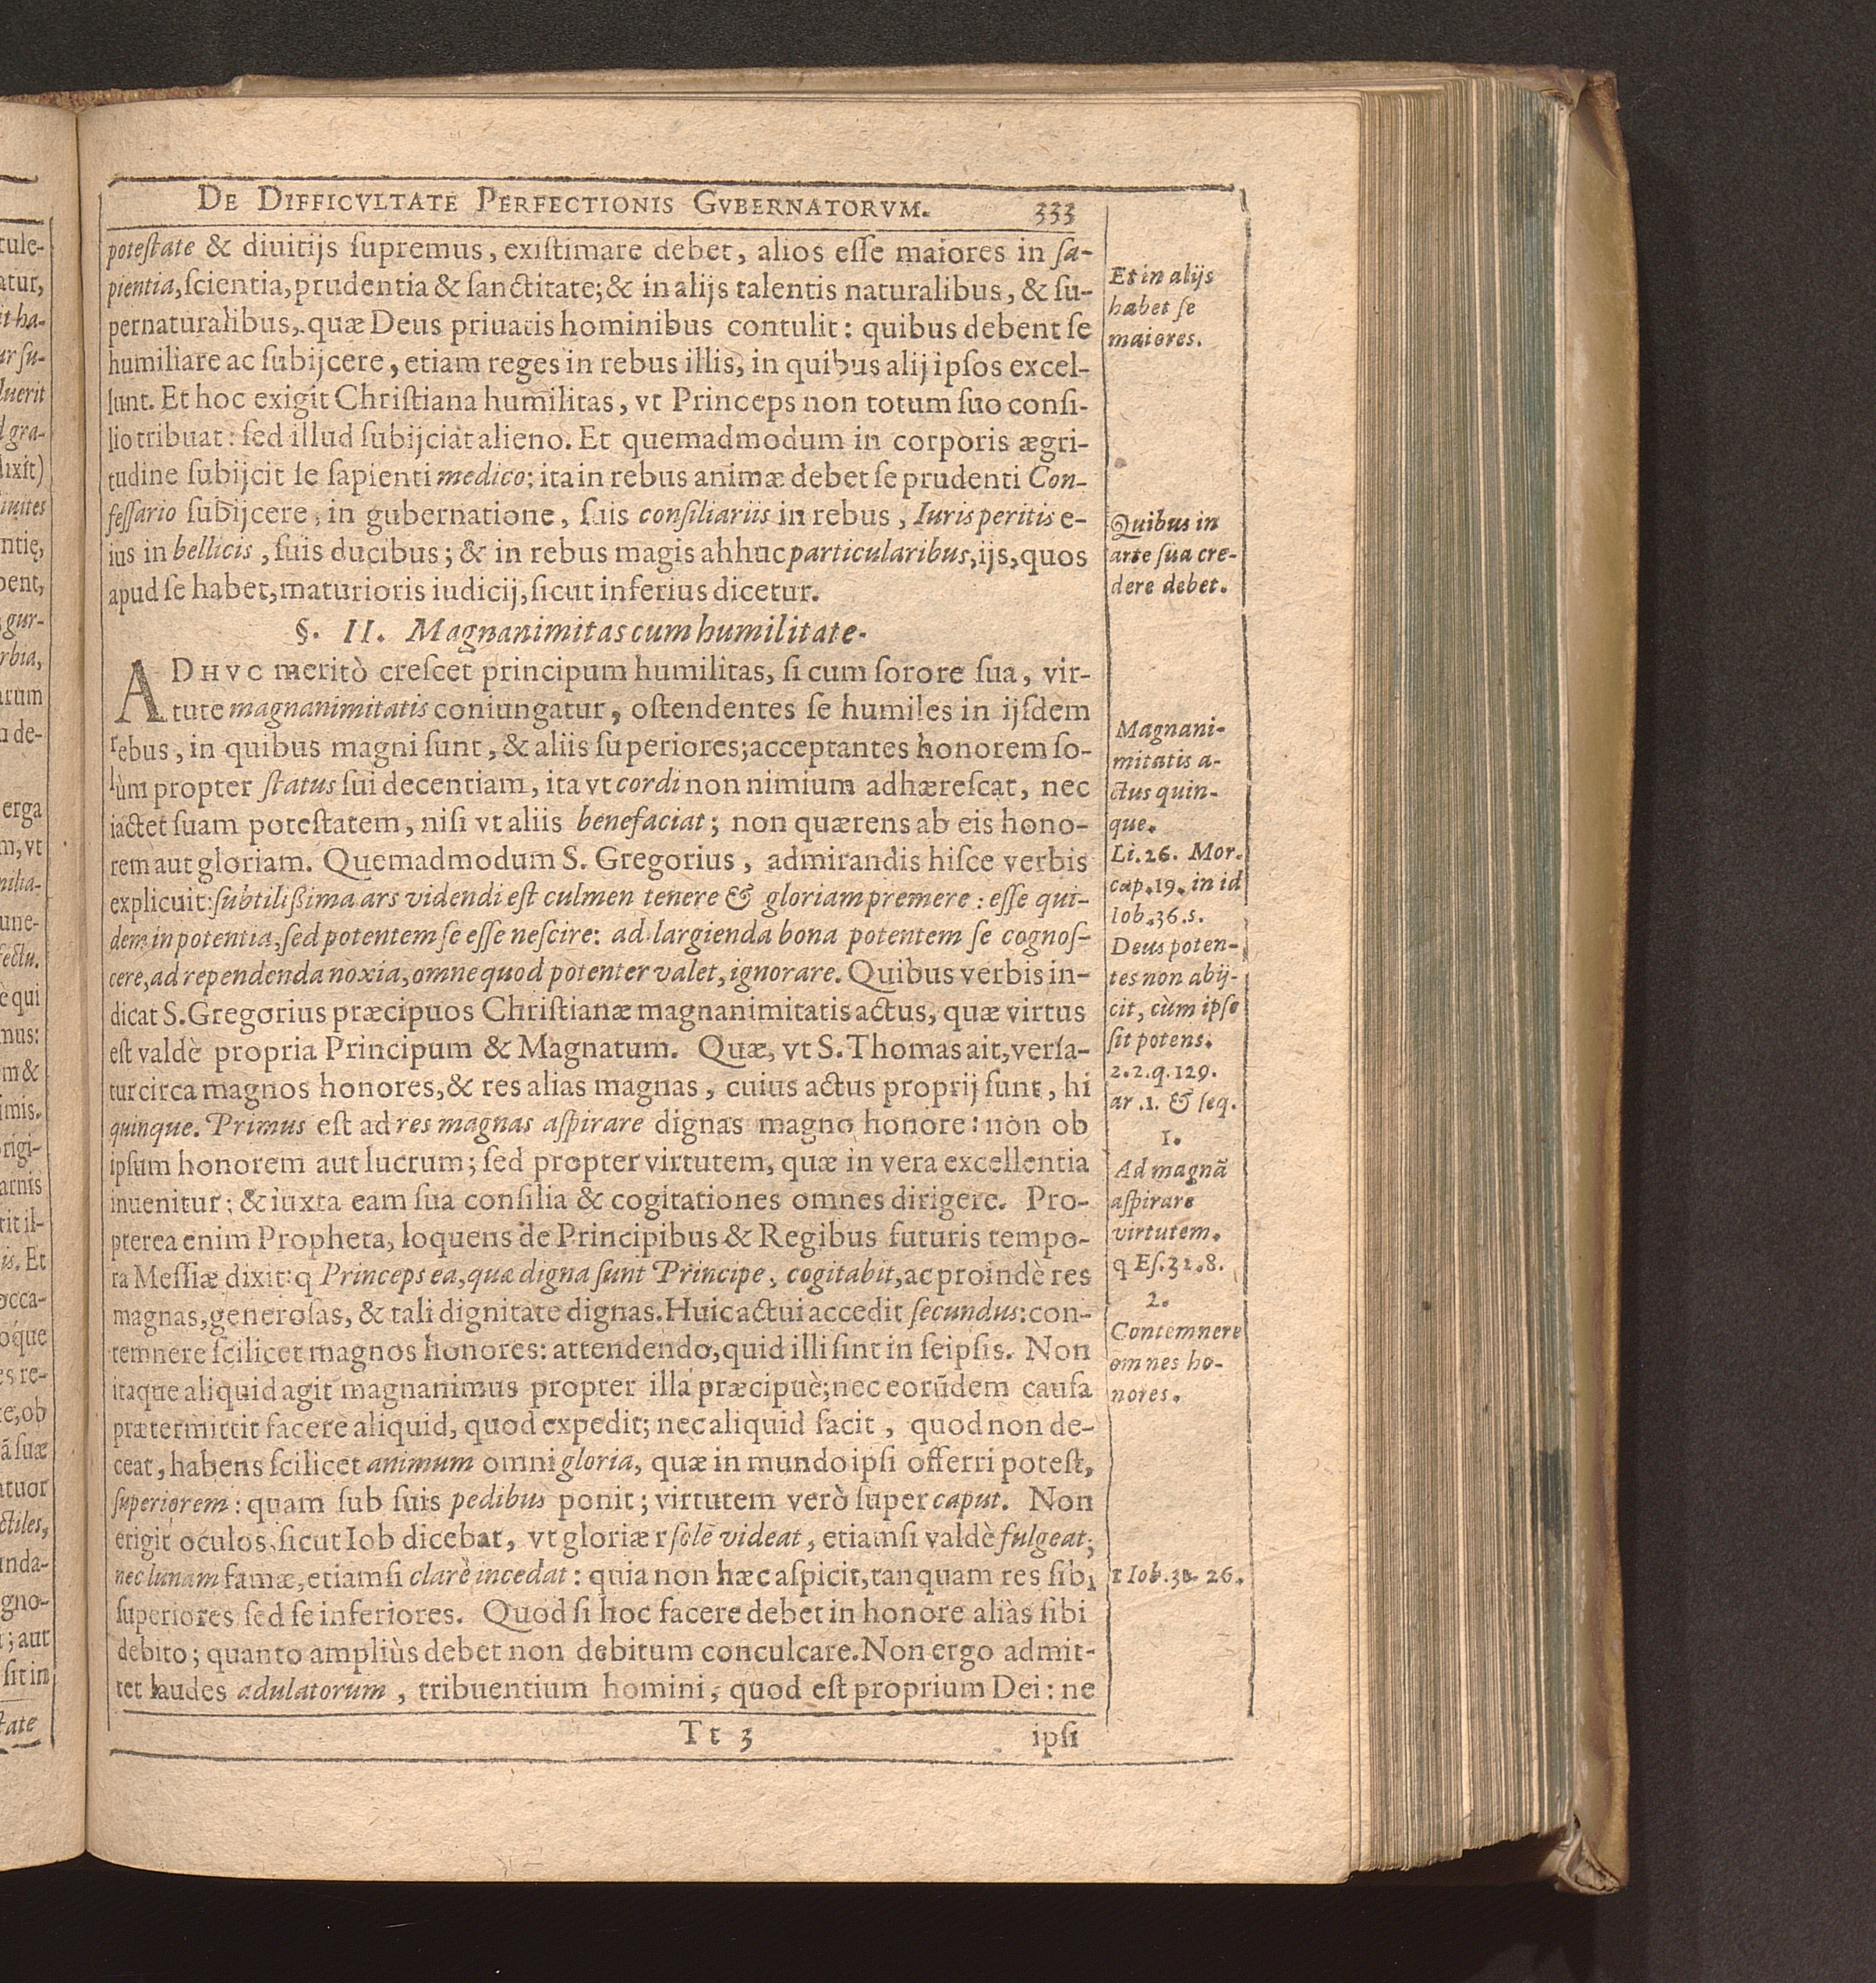 DE DIFFICVLTATE PERFECTIONIS GVBERNATORVM. 333
poteſtate & diuitijs ſupremus, exiſtimare debet, alios eſſe maiores in ſa-
pientia, ſcientia, prudentia & ſanctitate; & in alijs talentis naturalibus, & ſu-
pernaturalibus, quæ Deus priuatis hominibus contulit: quibus debent ſe
humiliare ac ſubijcere, etiam reges in rebus illis, in quibus alij ipſos excel-
lunt. Et hoc exigit Chriſtiana humilitas, vt Princeps non totum ſuo conſi-
lio tribuat: ſed illud ſubijciat alieno. Et quemadmodum in corporis ægri-
tudine ſubijcit ſe ſapienti medico; ita in rebus animæ debet ſe prudenti Con-
feſſario ſubijcere, in gubernatione, ſuis conſiliariis in rebus, Iuris peritis e-
ius in bellicis, ſuis ducibus; & in rebus magis ahhuc particularibus, ijs, quos
apud ſe habet, maturioris iudicij, ſicut inferius dicetur.
§. II. Magnanimitas cum humilitate.
ADHVC meritò creſcet principum humilitas, ſi cum ſorore ſua, vir-
tute magnanimitatis coniungatur, oſtendentes ſe humiles in ijſdem
rebus, in quibus magni ſunt, & aliis ſuperiores; acceptantes honorem ſo-
lùm propter ſtatus ſui decentiam, ita vt cordi non nimium adhæreſcat, nec
iactet ſuam poteſtatem, niſi vt aliis benefaciat; non quærens ab eis hono-
rem aut gloriam. Quemadmodum S. Gregorius, admirandis hiſce verbis
explicuit: ſubtilißima ars videndi eſt culmen tenere & gloriam premere: eſſe qui-
dem in potentia, ſed potentem ſe eſſe neſcire: ad largienda bona potentem ſe cognoſ-
cere, ad rependenda noxia, omne quod potenter valet, ignorare. Quibus verbis in-
dicat S. Gregorius præcipuos Chriſtianæ magnanimitatis actus, quæ virtus
eſt valdè propria Principum & Magnatum. Quæ, vt S. Thomas ait, verſa-
tur circa magnos honores, & res alias magnas, cuius actus proprij ſunt, hi
quinque. Primus eſt ad res magnas aſpirare dignas magno honore: non ob
ipſum honorem aut lucrum; ſed propter virtutem, quæ in vera excellentia
inuenitur; & iuxta eam ſua conſilia & cogitationes omnes dirigere. Pro-
pterea enim Propheta, loquens de Principibus & Regibus futuris tempo-
ra Meſſiæ dixit: q Princeps ea, quæ digna ſunt Principe, cogitabit, ac proindè res
magnas, generoſas, & tali dignitate dignas. Huic actui accedit ſecundus: con-
temnere ſcilicet magnos honores: attendendo, quid illi ſint in ſeipſis. Non
itaque aliquid agit magnanimus propter illa præcipuè; nec eorũdem cauſa
prætermittit facere aliquid, quod expedit; nec aliquid facit, quod non de-
ceat, habens ſcilicet animum omni gloria, quæ in mundo ipſi offerri poteſt,
ſuperiorem: quam ſub ſuis pedibus ponit; virtutem verò ſuper caput. Non
erigit oculos, ſicut Iob dicebat, vt gloriæ r ſolē videat, etiamſi valdè fulgeat;
nec lunam famæ, etiamſi clarè incedat: quia non hæc aſpicit, tanquam res ſibi
ſuperiores ſed ſe inferiores. Quod ſi hoc facere debet in honore aliàs ſibi
debito; quanto ampliùs debet non debitum conculcare. Non ergo admit-
tet laudes adulatorum, tribuentium homini, quod eſt proprium Dei: ne
Tt 3 ipſi
Et in alijs
habet ſe
maiores.
Quibus in
arte ſua cre-
dere debet.
Magnani-
mitatis a-
ctus quin-
que.
Li. 26. Mor.
cap. 19. in id
Iob. 36. s.
Deus poten-
tes non abij-
cit, cùm ipſe
ſit potens.
2. 2. q. 129.
ar. 1. & ſeq.
1.
Ad magnã
aſpirare
virtutem.
q Eſ. 32. 8.
2.
Contemnere
omnes ho-
nores.
r Iob. 26.
tule-
atur,
it ha-
ur ſu-
luerit
d gra-
dixit)
iuites
ntię,
bent,
gur-
rbia,
arum
u de-
erga
m, vt
milia-
une-
fectu.
è qui
mus:
m &
imis.
origi-
arnis
rit il-
is. Et
occa-
oque
es re-
te, ob
ã ſuæ
atuor
ctiles,
unda-
gno-
; aut
ſit in
ſtate